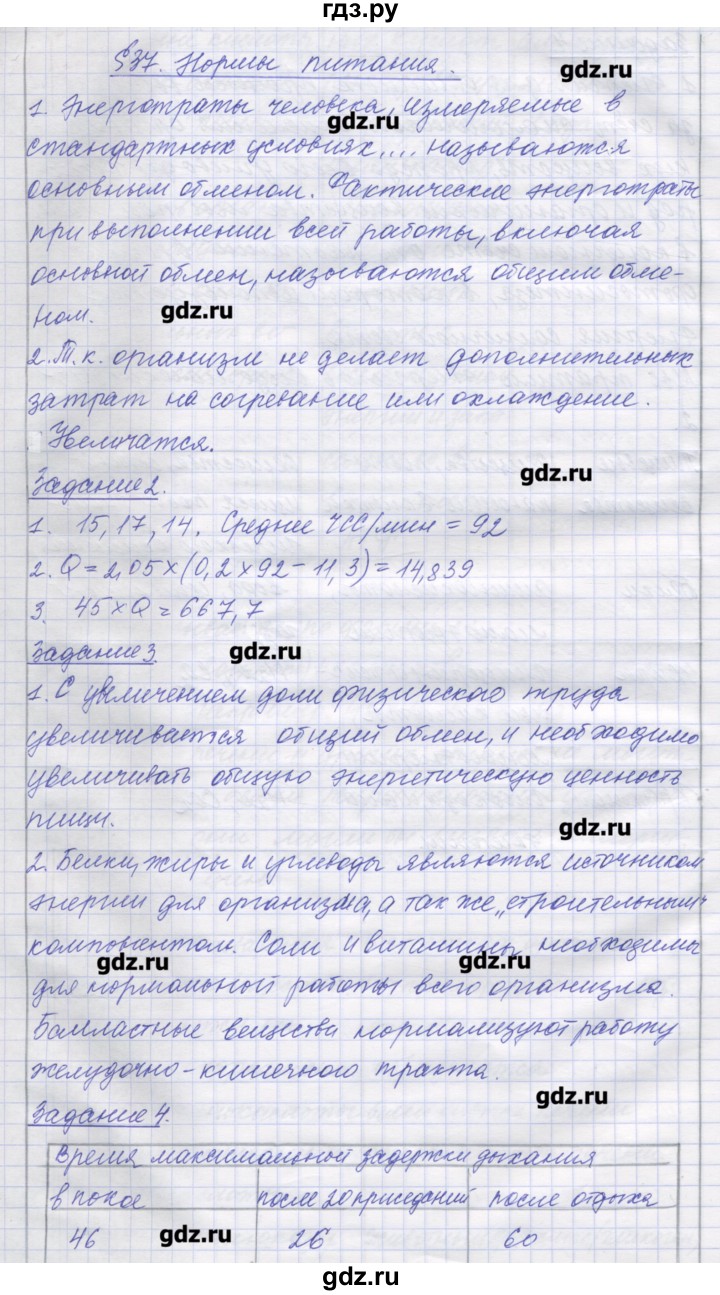 гдз.ру
§37. Нормы питания.
gdz.ru
1. Энерготраты человека, измеряемые в
gdz.ru
стандартных условиях,... называются
основным обменом. Фактические энерготраты
при выполнении всей работы, включая
основной обмен, называются общим обме-
ном.
gdz.ru
2. Т.к. организм не делает дополнительных
затрат на согревание или охлаждение.
Увеличатся.
gdz.ru
Задание 2.
1. 15, 17, 14. Среднее ЧСС/мин = 92
2. Q = 2,05 × (0,2 × 92 - 11,3) = 14,839
3. 45 × Q = 667,7
Задание 3.
gdz.ru
1. С увеличением доли физического труда
увеличивается общий обмен, и необходимо
увеличивать общую энергетическую ценность
пищи.
gdz.ru
2. Белки, жиры и углеводы являются источником
энергии для организма, а так же „строительным"
компонентом. Соли и витамины необходимы
gdz.ru
gdz.ru
для нормальной работы всего организма.
Балластные вещества нормализуют работу
желудочно-кишечного тракта.
gdz.ru
Задание 4.
Время максимальной задержки дыхания
в покое после 20 приседаний после отдыха
46 gdz.ru 26 60
gdz.ru